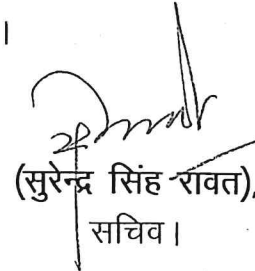 ।
(सुरेन्द्र सिंह रावत),
सचिव।